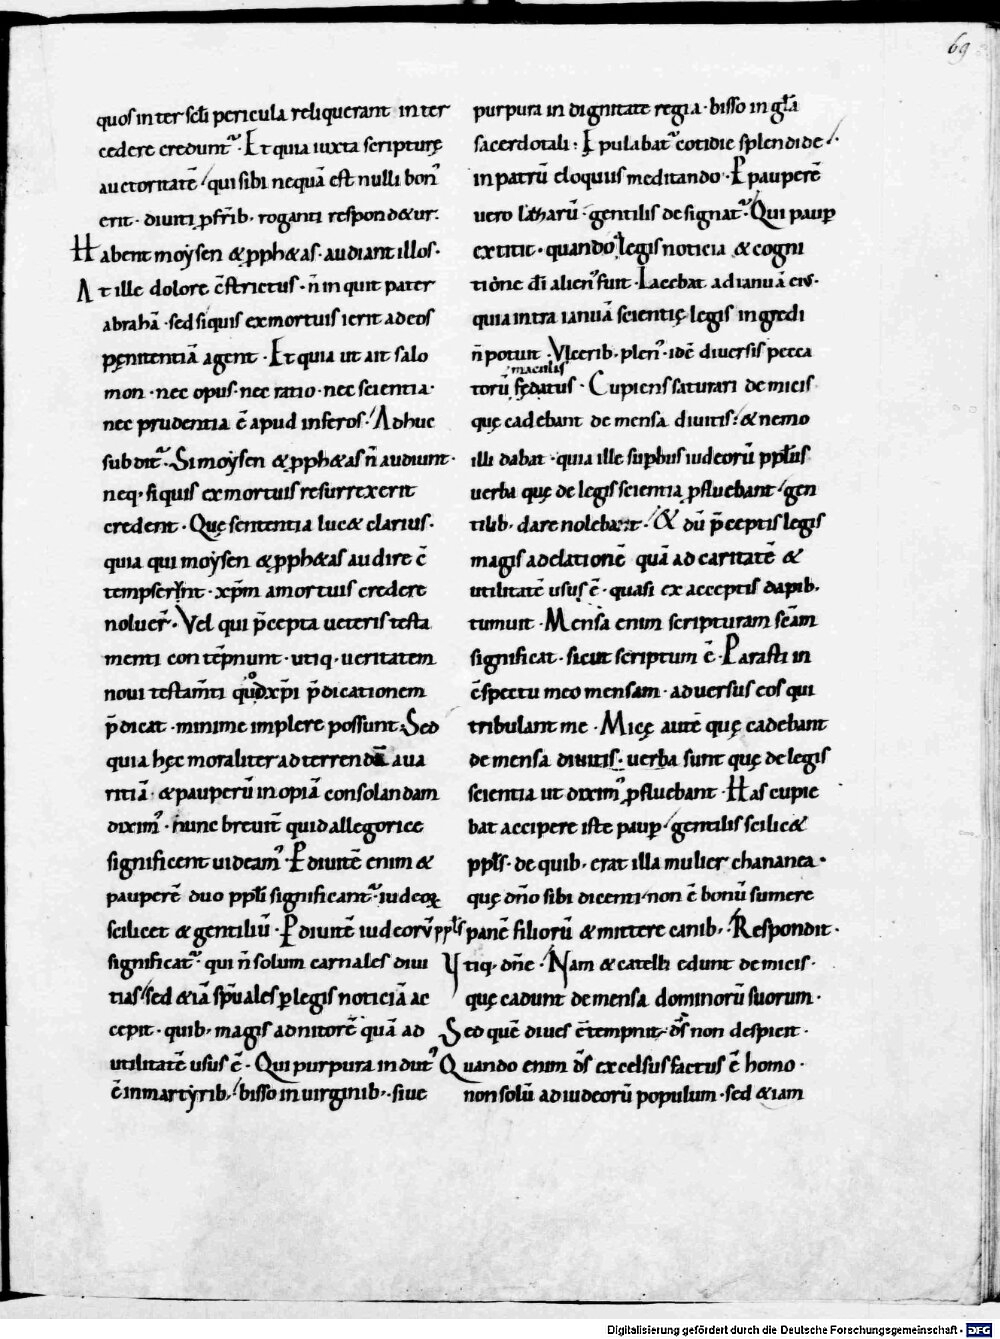 69
quos inter scli pericula reliquerant inter
cedere credunt᷑. Et quia iuxta scripturę
auctoritatē / qui sibi nequā est nulli bon᷒
erit. diuiti ꝓ frīb. roganti respond&ur.
Habent moẏsen & ꝓph&as. audiant illos.
At ille dolore c̄strictus. n̄ inquit pater
abrahā. sed si quis ex mortuis ierit ad eos
pęnitentiā agent. Et quia ut ait salo
mon. nec opus. nec ratio. nec scientia.
nec prudentia ē apud inferos. / Adhuc
subdit᷑. Si moẏsen & ꝓph&as n̄ audiunt.
neq. si quis ex mortuis resurrexerit
credent. Quę sententia luc& clarius.
quia qui moẏsen & ꝓph&as audire c̄
tempserint. xp̄m a mortuis credere
noluer̄. Vel qui p̄cepta ueteris testa
menti contēpnunt. utiq. ueritatem
noui testam̄ti quod xp̄i p̄dicationem
p̄dicat. minime implere possunt. Sed
quia hęc moraliter ad terrendā aua
ritiā. & pauperū inopiā consolandam
dixim᷒. nunc breuit̄ quid allegorice
significent uideam᷒. P diuitē enim &
pauperē duo ppl̄i significant᷑. iudeoꝝ
scilicet & gentiliū. P diuitē iudeorū ppl̄s
significat᷑. qui n̄ solum carnales diui
tias / sed & iā sp̄uales ꝑ legis noticiā ac
cepit. quib, magis ad nitorē quā ad
utilitatē usus ē. Qui purpura indut᷒
ē in martẏrib, / bisso in uirginib,. siue
purpura in dignitate regia. bisso in gl̄a
sacerdotali. Epulabat᷑ cotidie splendide. /
in patrū eloquiis meditando. P pauperē
uero lazharū. gentilis designat᷑. Qui paup̲
extitit. quando legis noticia & cogni
tione dī alien᷒ fuit. Iacebat ad ianuā eiꝰ.
quia intra ianuā scientię legis ingredi
n̄ potuit. Vlcerib. plen᷒. idē diuersis pecca
maculis
torū fędatus. Cupiens saturari de micis
quę cadebant de mensa diuitis. / & nemo
illi dabat. quia ille supbus iudeorū ppl̄us
uerba quę de legis scientia ꝓfluebant / gen
tilib. dare nolebat. / & dū p̄ceptis legis
magis ad elationē quā ad caritatē &
utilitatē usus ē. quasi ex acceptis dapib.
tumuit. Mensa enim scripturam scām
significat. sicut scriptum ē. Parasti in
c̄spectu meo mensam. aduersus eos qui
tribulant me. Micę autē quę cadebant
de mensa diuitis. uerba sunt quę de legis
scientia ut dixim᷒ ꝓfluebant. Has cupie
bat accipere iste paup̲ / gentilis scilic&
ppl̄s. de quib, erat illa mulier chananea.
quę dn̄o sibi dicenti / non ē bonū sumere
panē filiorū & mittere canib,. / Respondit.
Vtiq. dn̄e. Nam & catelli edunt de micis.
quę cadunt de mensa dominorū suorum.
Sed quē diues c̄tempnit. ds̄ non despicit.
Quando enim ds̄ excelsus factus ē homo.
non solū ad iudeorū populum. sed & iam
Digitalisierung gefördert durch die Deutsche Forschungsgemeinschaft - DFG